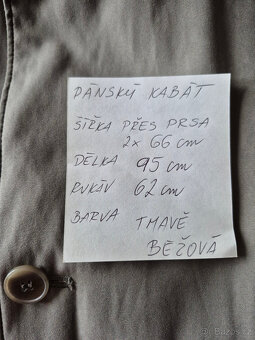 PÁNSKÝ KABÁT
ŠÍŘKA PŘES PRSA
2x 66 cm
DÉLKA 95 cm
RUKÁV 62 cm
BARVA TMAVĚ
BÉŽOVÁ